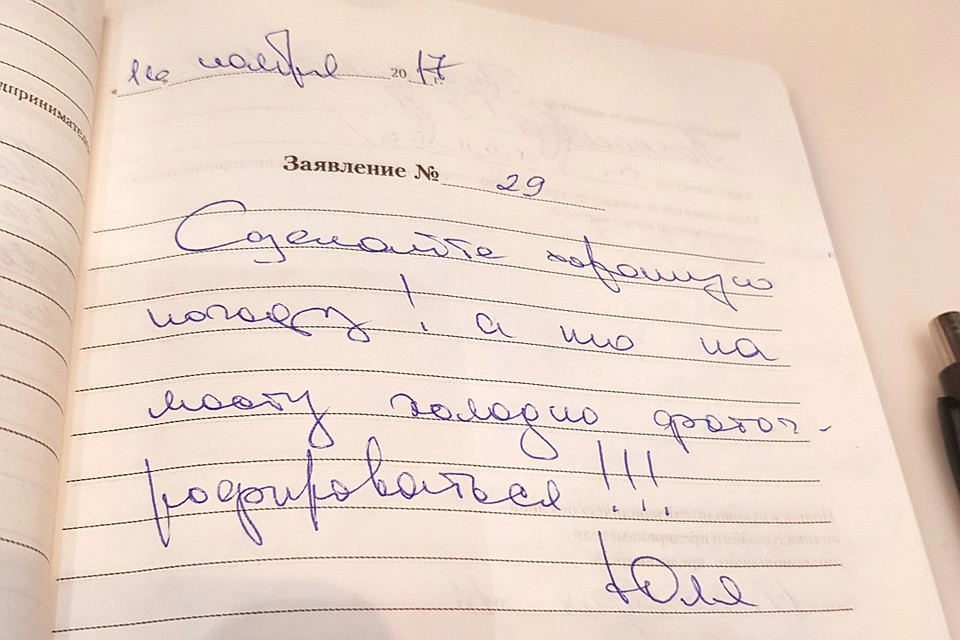 ноября 2017
Заявление № 29
Сделайте хорошую
погоду! а то на
мосту холодно фотог-
рафироваться!!!
Юля